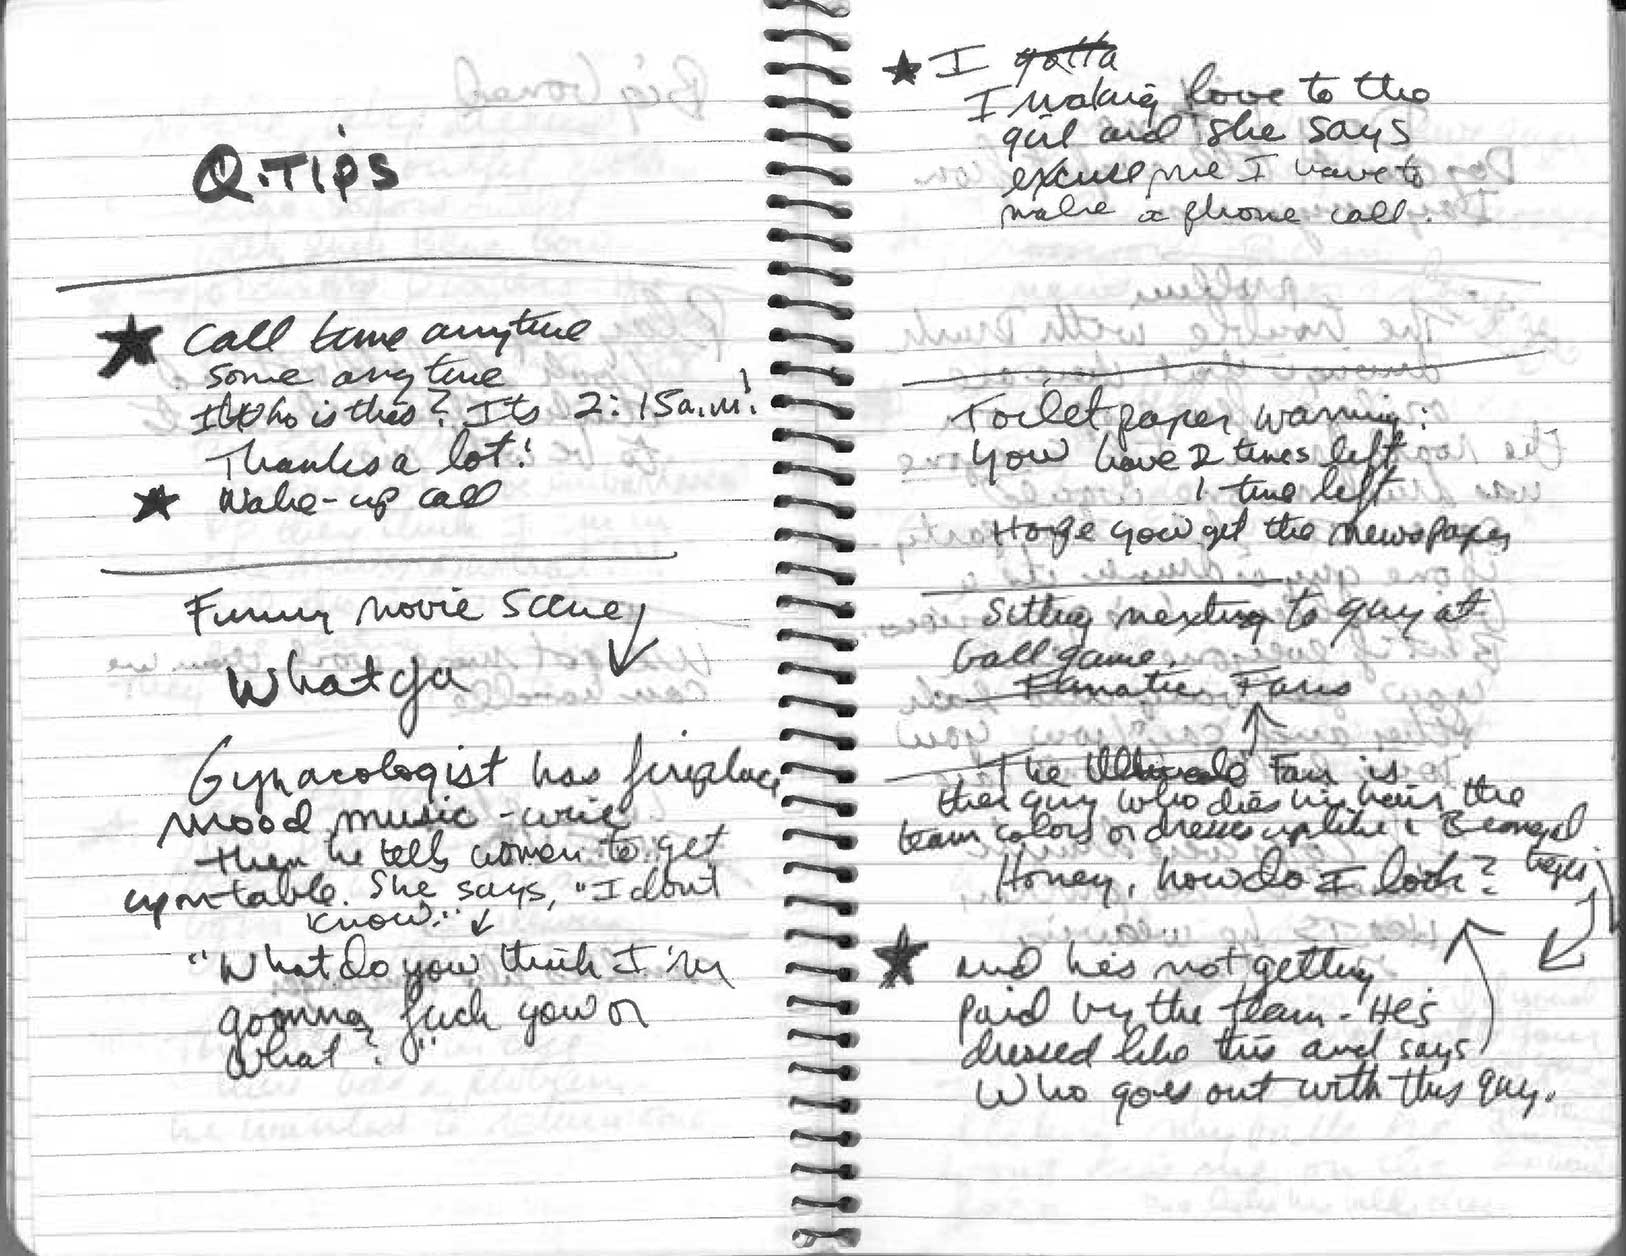 Q.Tips
★ Call time anytime
some anytime
who is this? Its 2:15a.m.!
Thanks a lot!
★ Wake-up call
Funny movie scene
What ya
Gynacologist has fireplace
mood music - wine
then he tells women to get
up on table. She says, "I dont
know."
"What do you think I'm
gonna fuck you or
what?"
★ I gotta
I making love to the
girl and she says
excuse me I have to
make a phone call.
Toilet paper warning:
you have 2 times left
1 time left
Hope you get the newspaper
Sitting next to guy at
ball game.
Fanatic Fans
The Fan is
the guy who dies his hair the
team colors or dresses up like a Bengal
Honey, how do I look?
★ and he's not getting
paid by the team - He's
dressed like this and says
Who goes out with this guy.